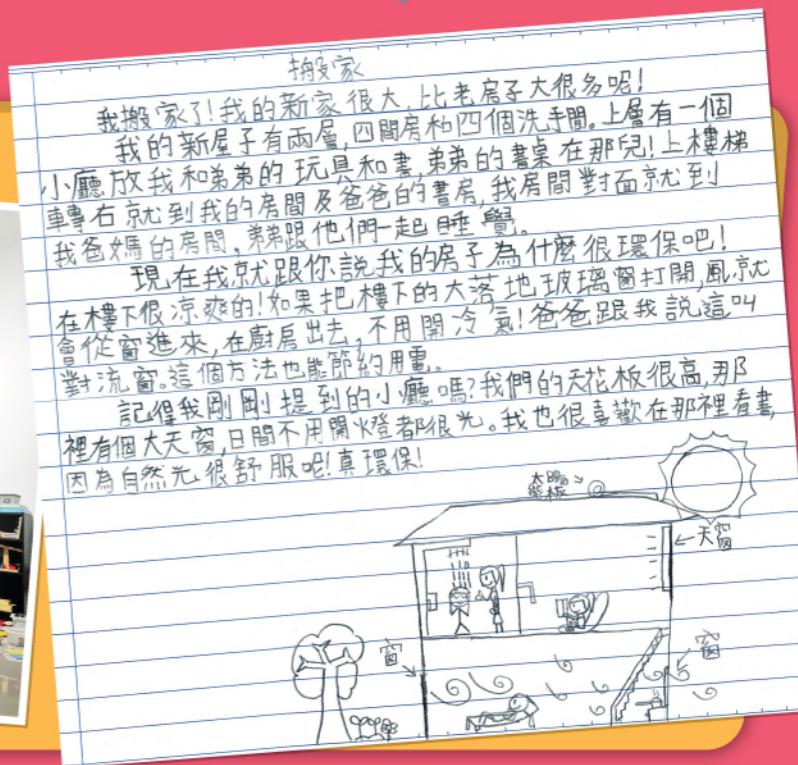 搬家
我搬家了!我的新家很大,比老房子大很多呢!
我的新屋子有兩層,四間房和四個洗手間。上層有一個
小廳放我和弟弟的玩具和書,弟弟的書桌在那兒!上樓梯
轉右就到我的房間及爸爸的書房,我房間對面就到
我爸媽的房間,弟弟跟他們一起睡覺。
現在我就跟你說我的房子為什麼很環保吧!
在樓下很涼爽的!如果把樓下的大落地玻璃窗打開,風就
會從窗進來,在廚房出去,不用開冷氣!爸爸跟我説這叫
對流窗。這個方法也能節約用電。
記得我剛剛提到的小廳嗎?我們的天花板很高,那
裡有個大天窗,日間不用開燈都很光。我也很喜歡在那裡看書,
因為自然光很舒服呢!真環保!
太陽
能板
天窗
窗
窗